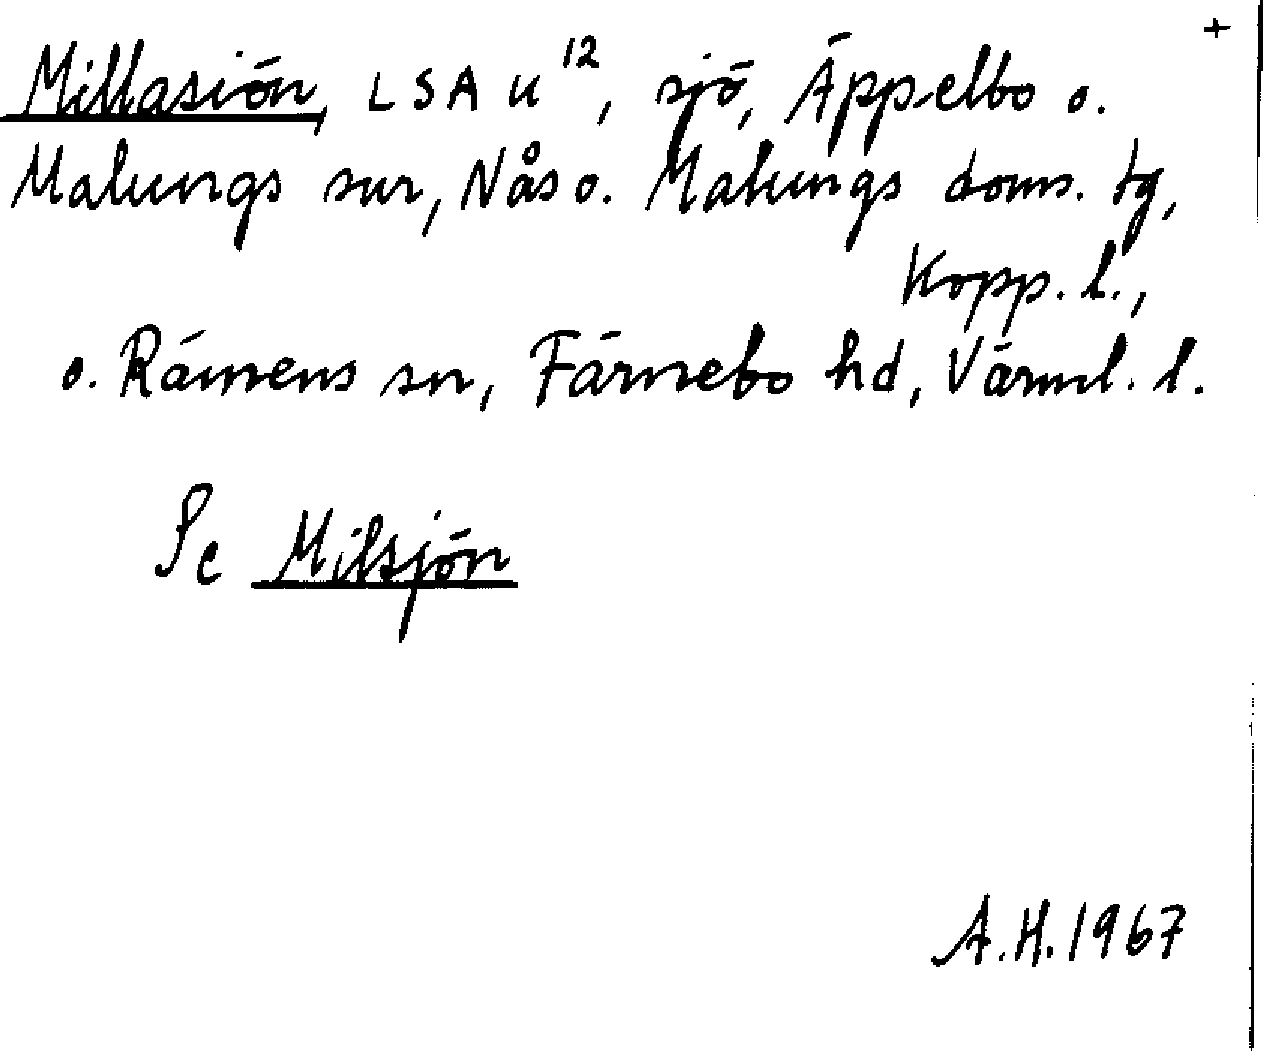 +
Millasiön, LSA U 12, sjö, Äppelbo o.
Malungs snr, Nås o. Malungs doms. tg,
Kopp. l.,
o. Rämens sn, Färnebo hd, Värml. l.
Se Milsjön
A.H. 1967